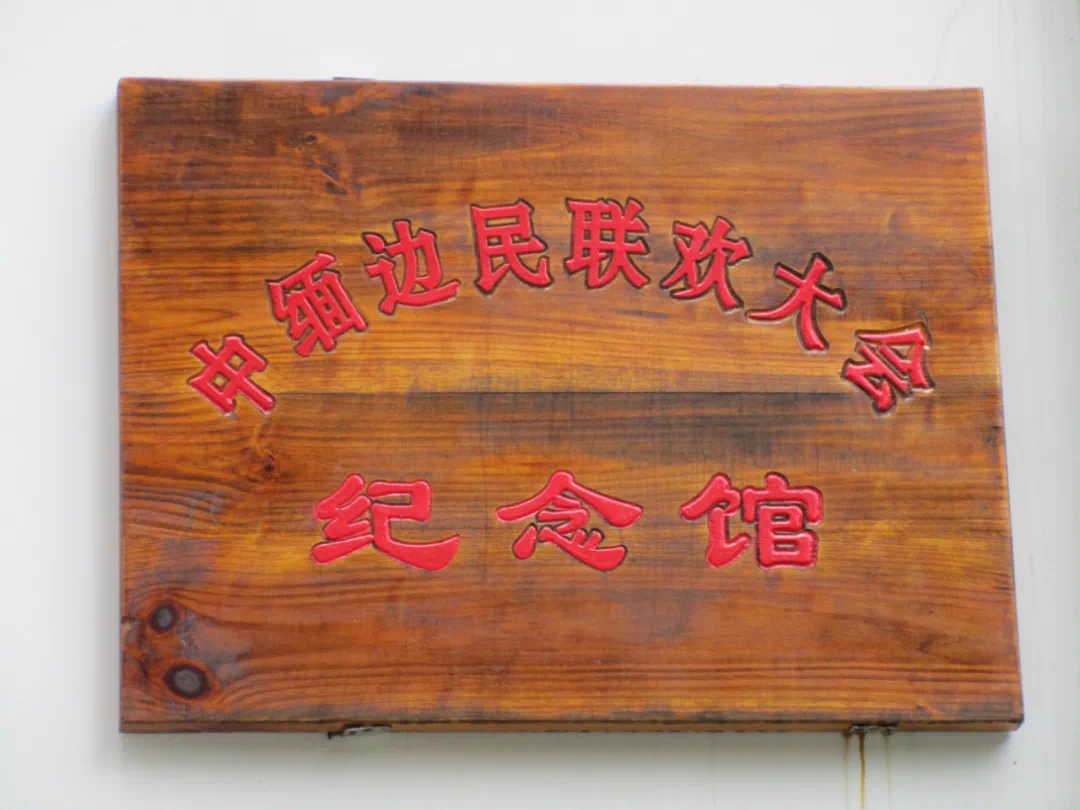 中缅边民联欢大会
纪念馆